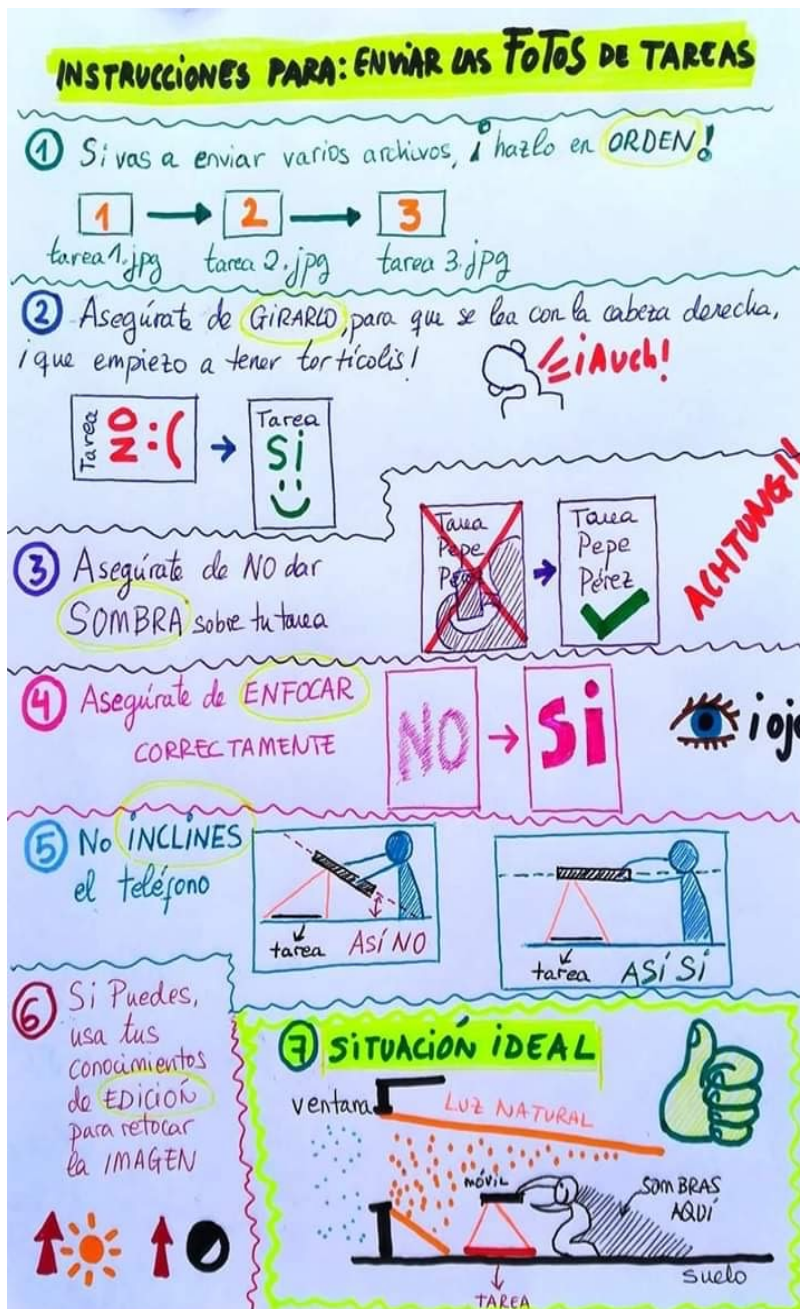 INSTRUCCIONES PARA: ENVIAR LAS FOTOS DE TAREAS
1 Si vas a enviar varios archivos, ¡hazlo en ORDEN!
1 2 3
tarea1.jpg tarea 2.jpg tarea 3.jpg
2 Asegúrate de GIRARLO, para que se lea con la cabeza derecha,
¡que empiezo a tener tortícolis!
¡AUCH!
Tarea
NO :(
Tarea
SI
3 Asegúrate de NO dar
SOMBRA sobre tu tarea
Tarea
Pepe
Tarea
Pepe
Pérez
ACHTUNG!!
4 Asegúrate de ENFOCAR
CORRECTAMENTE
NO
SI
¡ojo
5 No INCLINES
el teléfono
tarea ASÍ NO
tarea ASÍ SÍ
6 Si Puedes,
usa tus
conocimientos
de EDICIÓN
para retocar
la IMAGEN
7 SITUACIÓN IDEAL
ventana
LUZ NATURAL
móvil
SOMBRAS
AQUÍ
suelo
TAREA